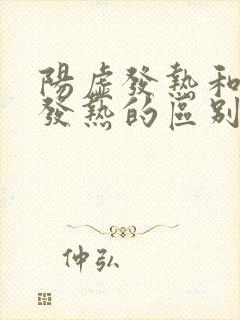 陽虛發熱和
發熱的區別
仲弘